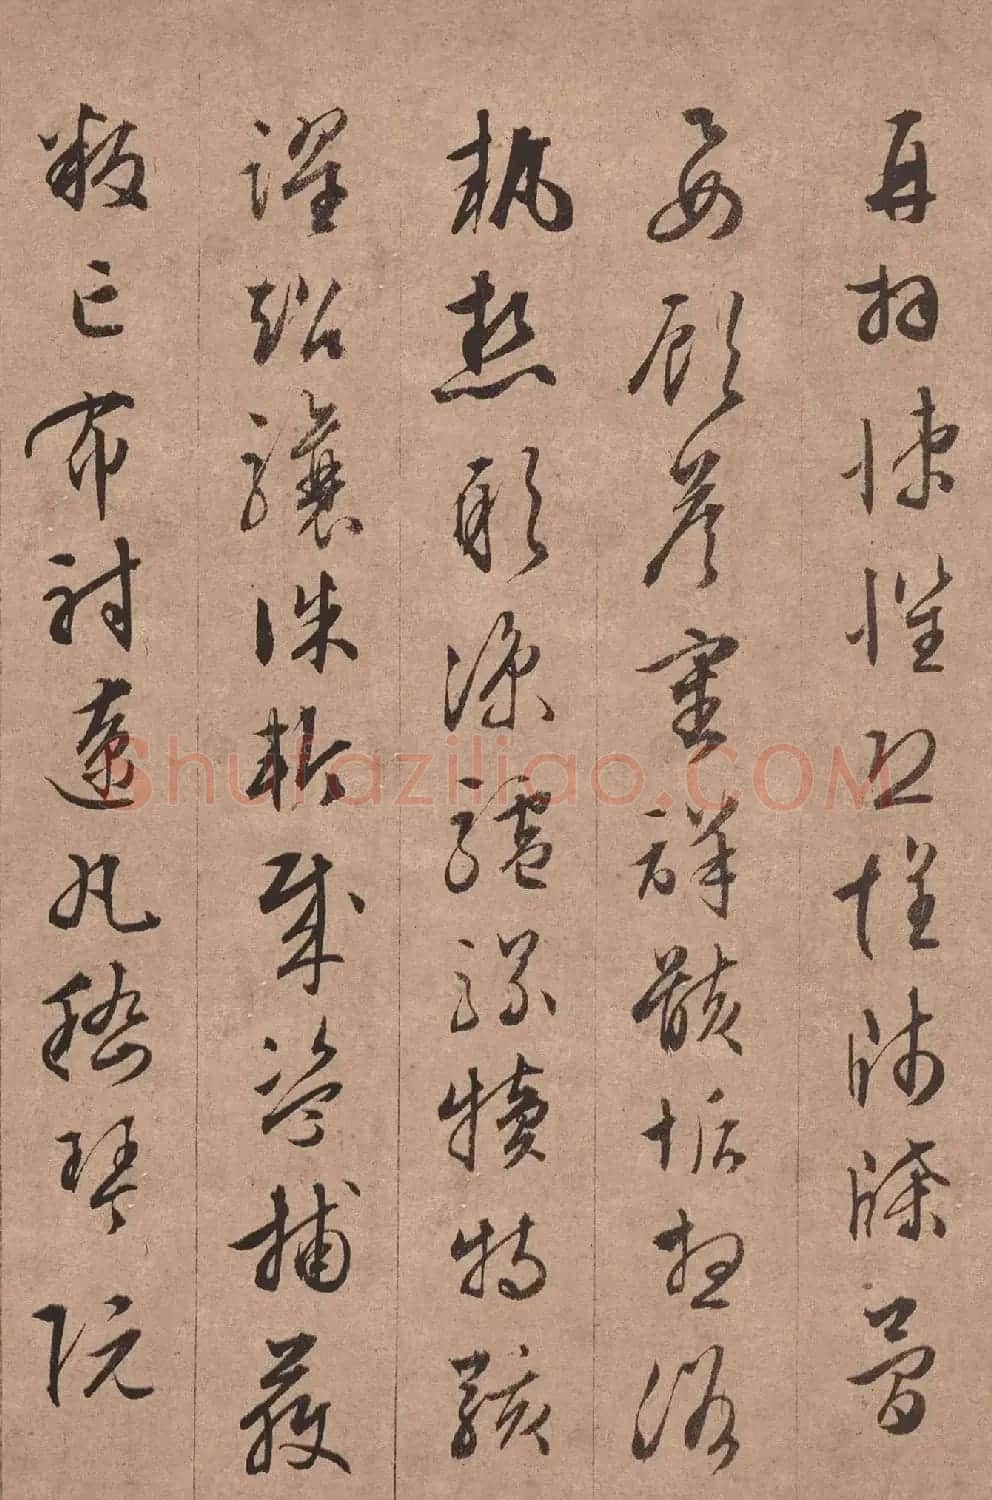 再拜悚懼恐惶牋牒簡
要顧答審詳骸垢想浴
執熱願涼驢騾犢特駭
躍超驤誅斬賊盜捕獲
叛亡布射遼丸嵇琴阮
Shufaziliao.COM